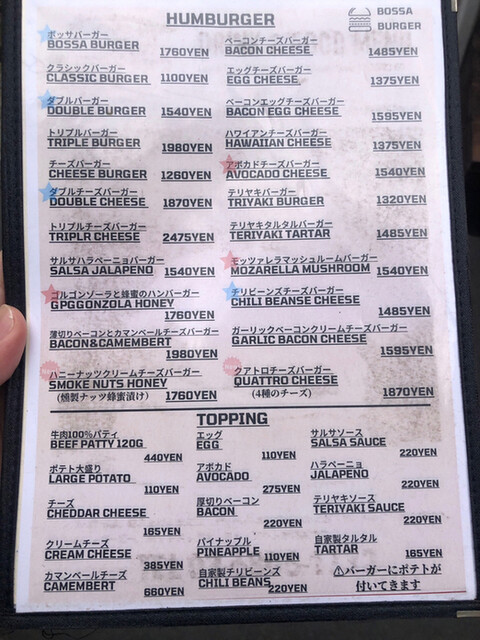 HUMBURGER
BOSSA
BURGER
ボッサバーガー
BOSSA BURGER 1760YEN
クラシックバーガー
CLASSIC BURGER 1100YEN
ダブルバーガー
DOUBLE BURGER 1540YEN
トリプルバーガー
TRIPLE BURGER 1980YEN
チーズバーガー
CHEESE BURGER 1260YEN
ダブルチーズバーガー
DOUBLE CHEESE 1870YEN
トリプルチーズバーガー
TRIPLR CHEESE 2475YEN
サルサハラペーニョバーガー
SALSA JALAPENO 1540YEN
ゴルゴンゾーラと蜂蜜のハンバーガー
GPGGONZOLA HONEY
1760YEN
薄切りベーコンとカマンベールチーズバーガー
BACON&CAMEMBERT
1980YEN
ハニーナッツクリームチーズバーガー
SMOKE NUTS HONEY
(燻製ナッツ蜂蜜漬け) 1760YEN
ベーコンチーズバーガー
BACON CHEESE 1485YEN
エッグチーズバーガー
EGG CHEESE 1375YEN
ベーコンエッグチーズバーガー
BACON EGG CHEESE 1595YEN
ハワイアンチーズバーガー
HAWAIIAN CHEESE 1375YEN
アボカドチーズバーガー
AVOCADO CHEESE 1540YEN
テリヤキバーガー
TRIYAKI BURGER 1320YEN
テリヤキタルタルバーガー
TERIYAKI TARTAR 1485YEN
モッツァレラマッシュルームバーガー
MOZARELLA MUSHROOM 1540YEN
チリビーンズチーズバーガー
CHILI BEANSE CHEESE
1485YEN
ガーリックベーコンクリームチーズバーガー
GARLIC BACON CHEESE
1595YEN
クアトロチーズバーガー
QUATTRO CHEESE
(4種のチーズ) 1870YEN
TOPPING
牛肉100%パティ
BEEF PATTY 120G
440YEN
ポテト大盛り
LARGE POTATO
110YEN
チーズ
CHEDDAR CHEESE
165YEN
クリームチーズ
CREAM CHEESE
385YEN
カマンベールチーズ
CAMEMBERT
660YEN
エッグ
EGG
110YEN
アボカド
AVOCADO
275YEN
厚切りベーコン
BACON
220YEN
パイナップル
PINEAPPLE 110YEN
自家製チリビーンズ
CHILI BEANS
220YEN
サルサソース
SALSA SAUCE
220YEN
ハラペーニョ
JALAPENO
220YEN
テリヤキソース
TERIYAKI SAUCE
220YEN
自家製タルタル
TARTAR 165YEN
⚠バーガーにポテトが
付いてきます